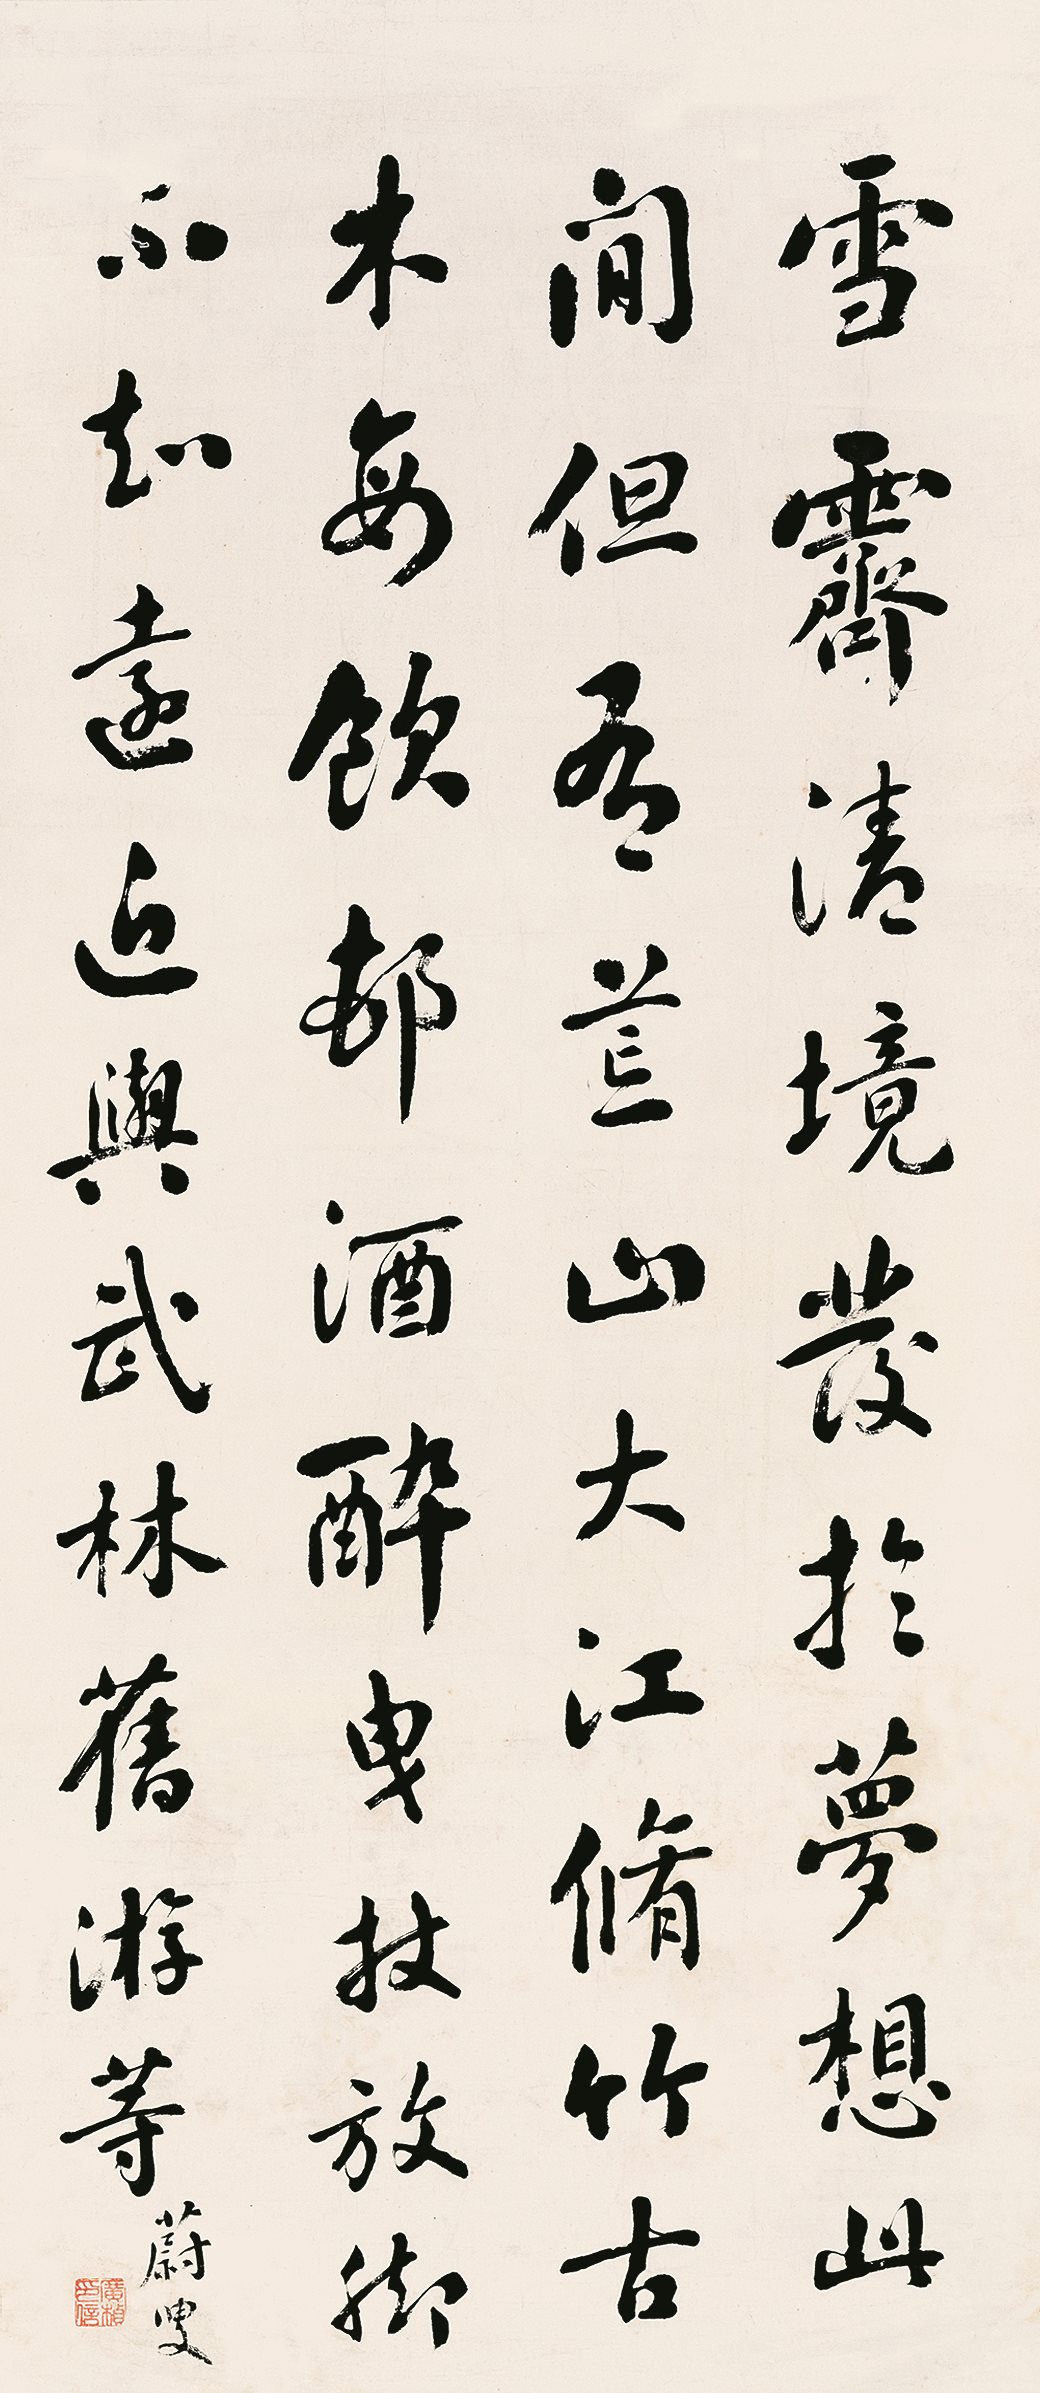 雪霽清境發於夢想此
間但有荒山大江脩竹古
木每飲邨酒醉曳杖放脚
不知遠近與武林舊游等
蔚叟